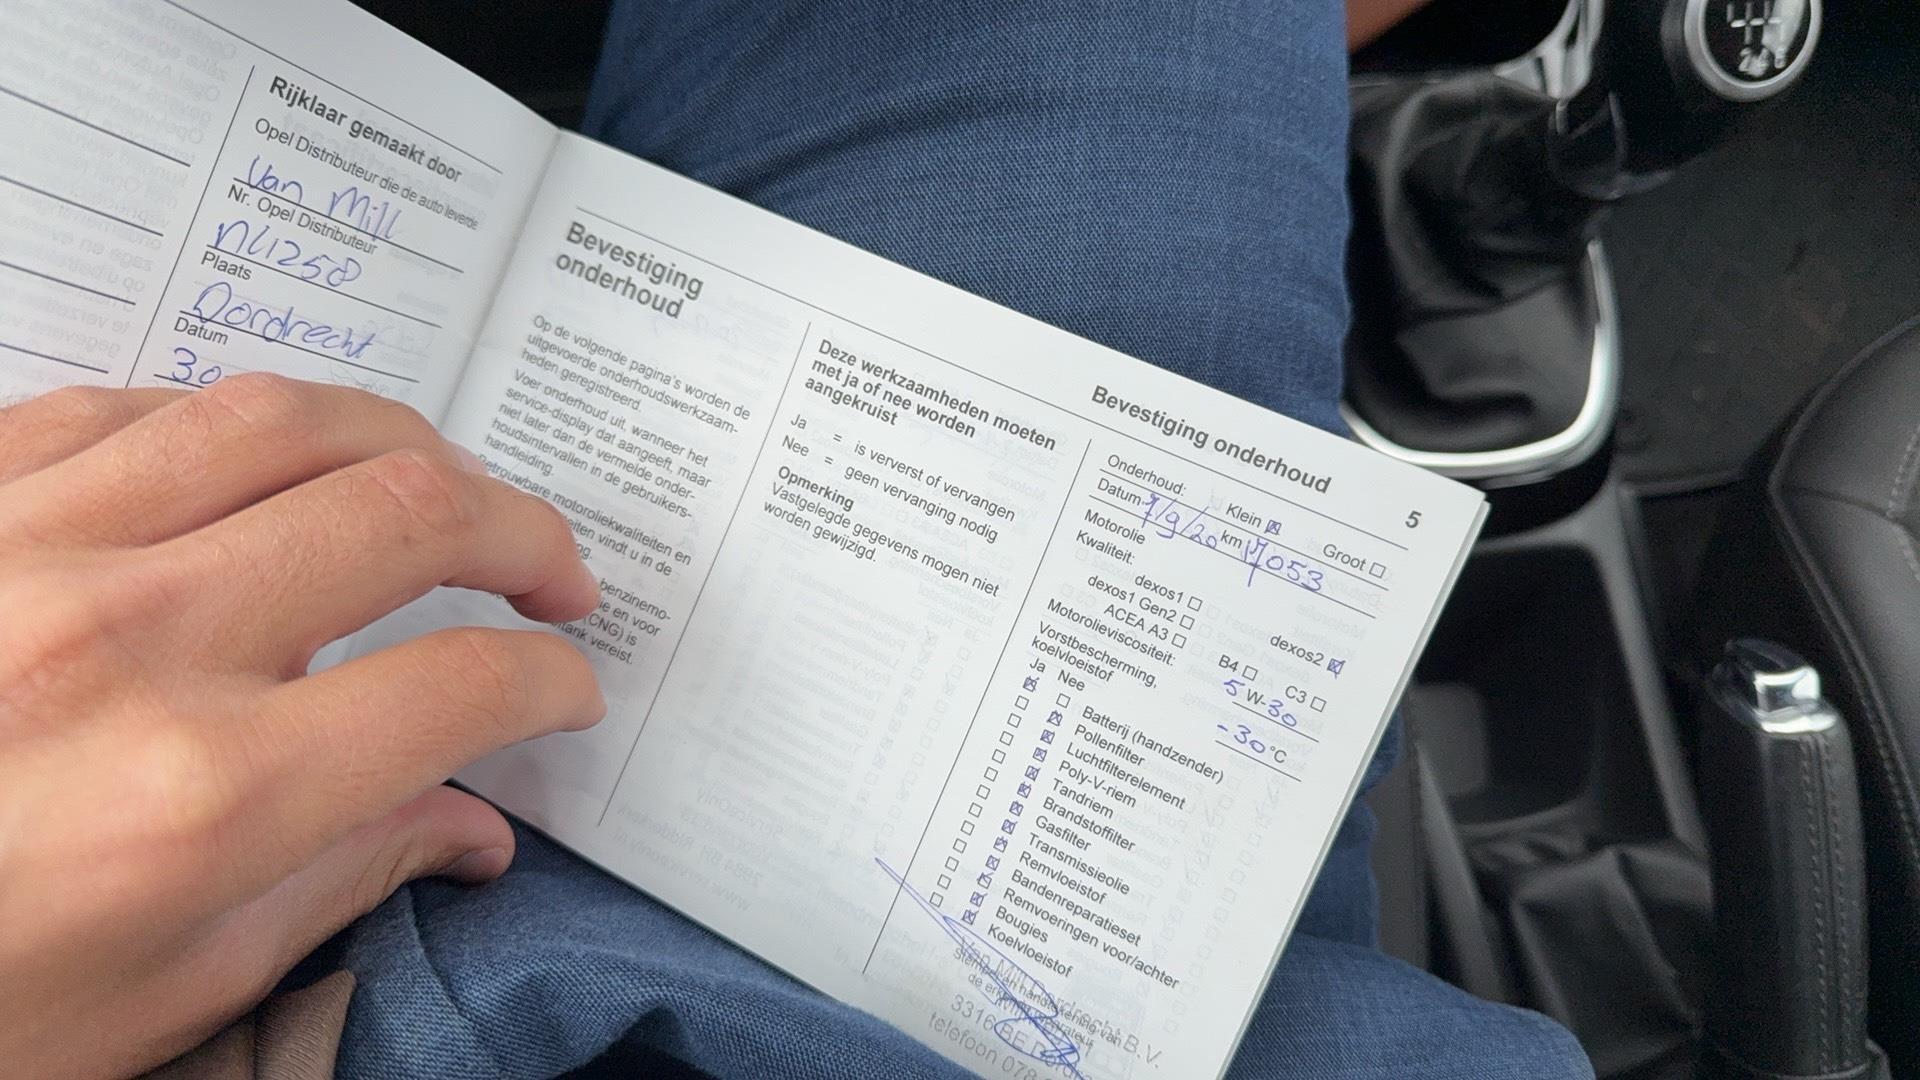 Rijklaar gemaakt door
Opel Distributeur die de auto leverde
Van Mill
Nr. Opel Distributeur
NL1258
Plaats
Dordrecht
Datum
30
Bevestiging
onderhoud
Op de volgende pagina's worden de
uitgevoerde onderhoudswerkzaam-
heden geregistreerd.
Voer onderhoud uit, wanneer het
service-display dat aangeeft, maar
niet later dan de vermelde onder-
houdsintervallen in de gebruikers-
handleiding.
Betrouwbare motoroliekwaliteiten en
vindt u in de
benzinemo-
en voor
(CNG) is
vereist.
Deze werkzaamheden moeten
met ja of nee worden
aangekruist
Ja = is ververst of vervangen
Nee = geen vervanging nodig
Opmerking
Vastgelegde gegevens mogen niet
worden gewijzigd.
Bevestiging onderhoud
5
Onderhoud: Klein ☒ Groot ☐
Datum 7/9/20 km 17053
Motorolie
Kwaliteit:
dexos1 ☐ dexos2 ☒
dexos1 Gen2 ☐
ACEA A3 ☐ B4 ☐ C3 ☐
Motorolieviscositeit: 5 W-30
Vorstbescherming,
koelvloeistof -30 °C
Ja Nee
☒ ☐ Batterij (handzender)
☐ ☒ Pollenfilter
☐ ☒ Luchtfilterelement
☐ ☒ Poly-V-riem
☐ ☒ Tandriem
☐ ☒ Brandstoffilter
☐ ☒ Gasfilter
☐ ☒ Transmissieolie
☐ ☒ Remvloeistof
☐ ☒ Bandenreparatieset
☐ ☒ Remvoeringen voor/achter
☐ ☒ Bougies
☐ ☒ Koelvloeistof
Van Mill Dordrecht B.V.
Stempel en handtekening van
de erkende reparateur
3316 BE
telefoon 078